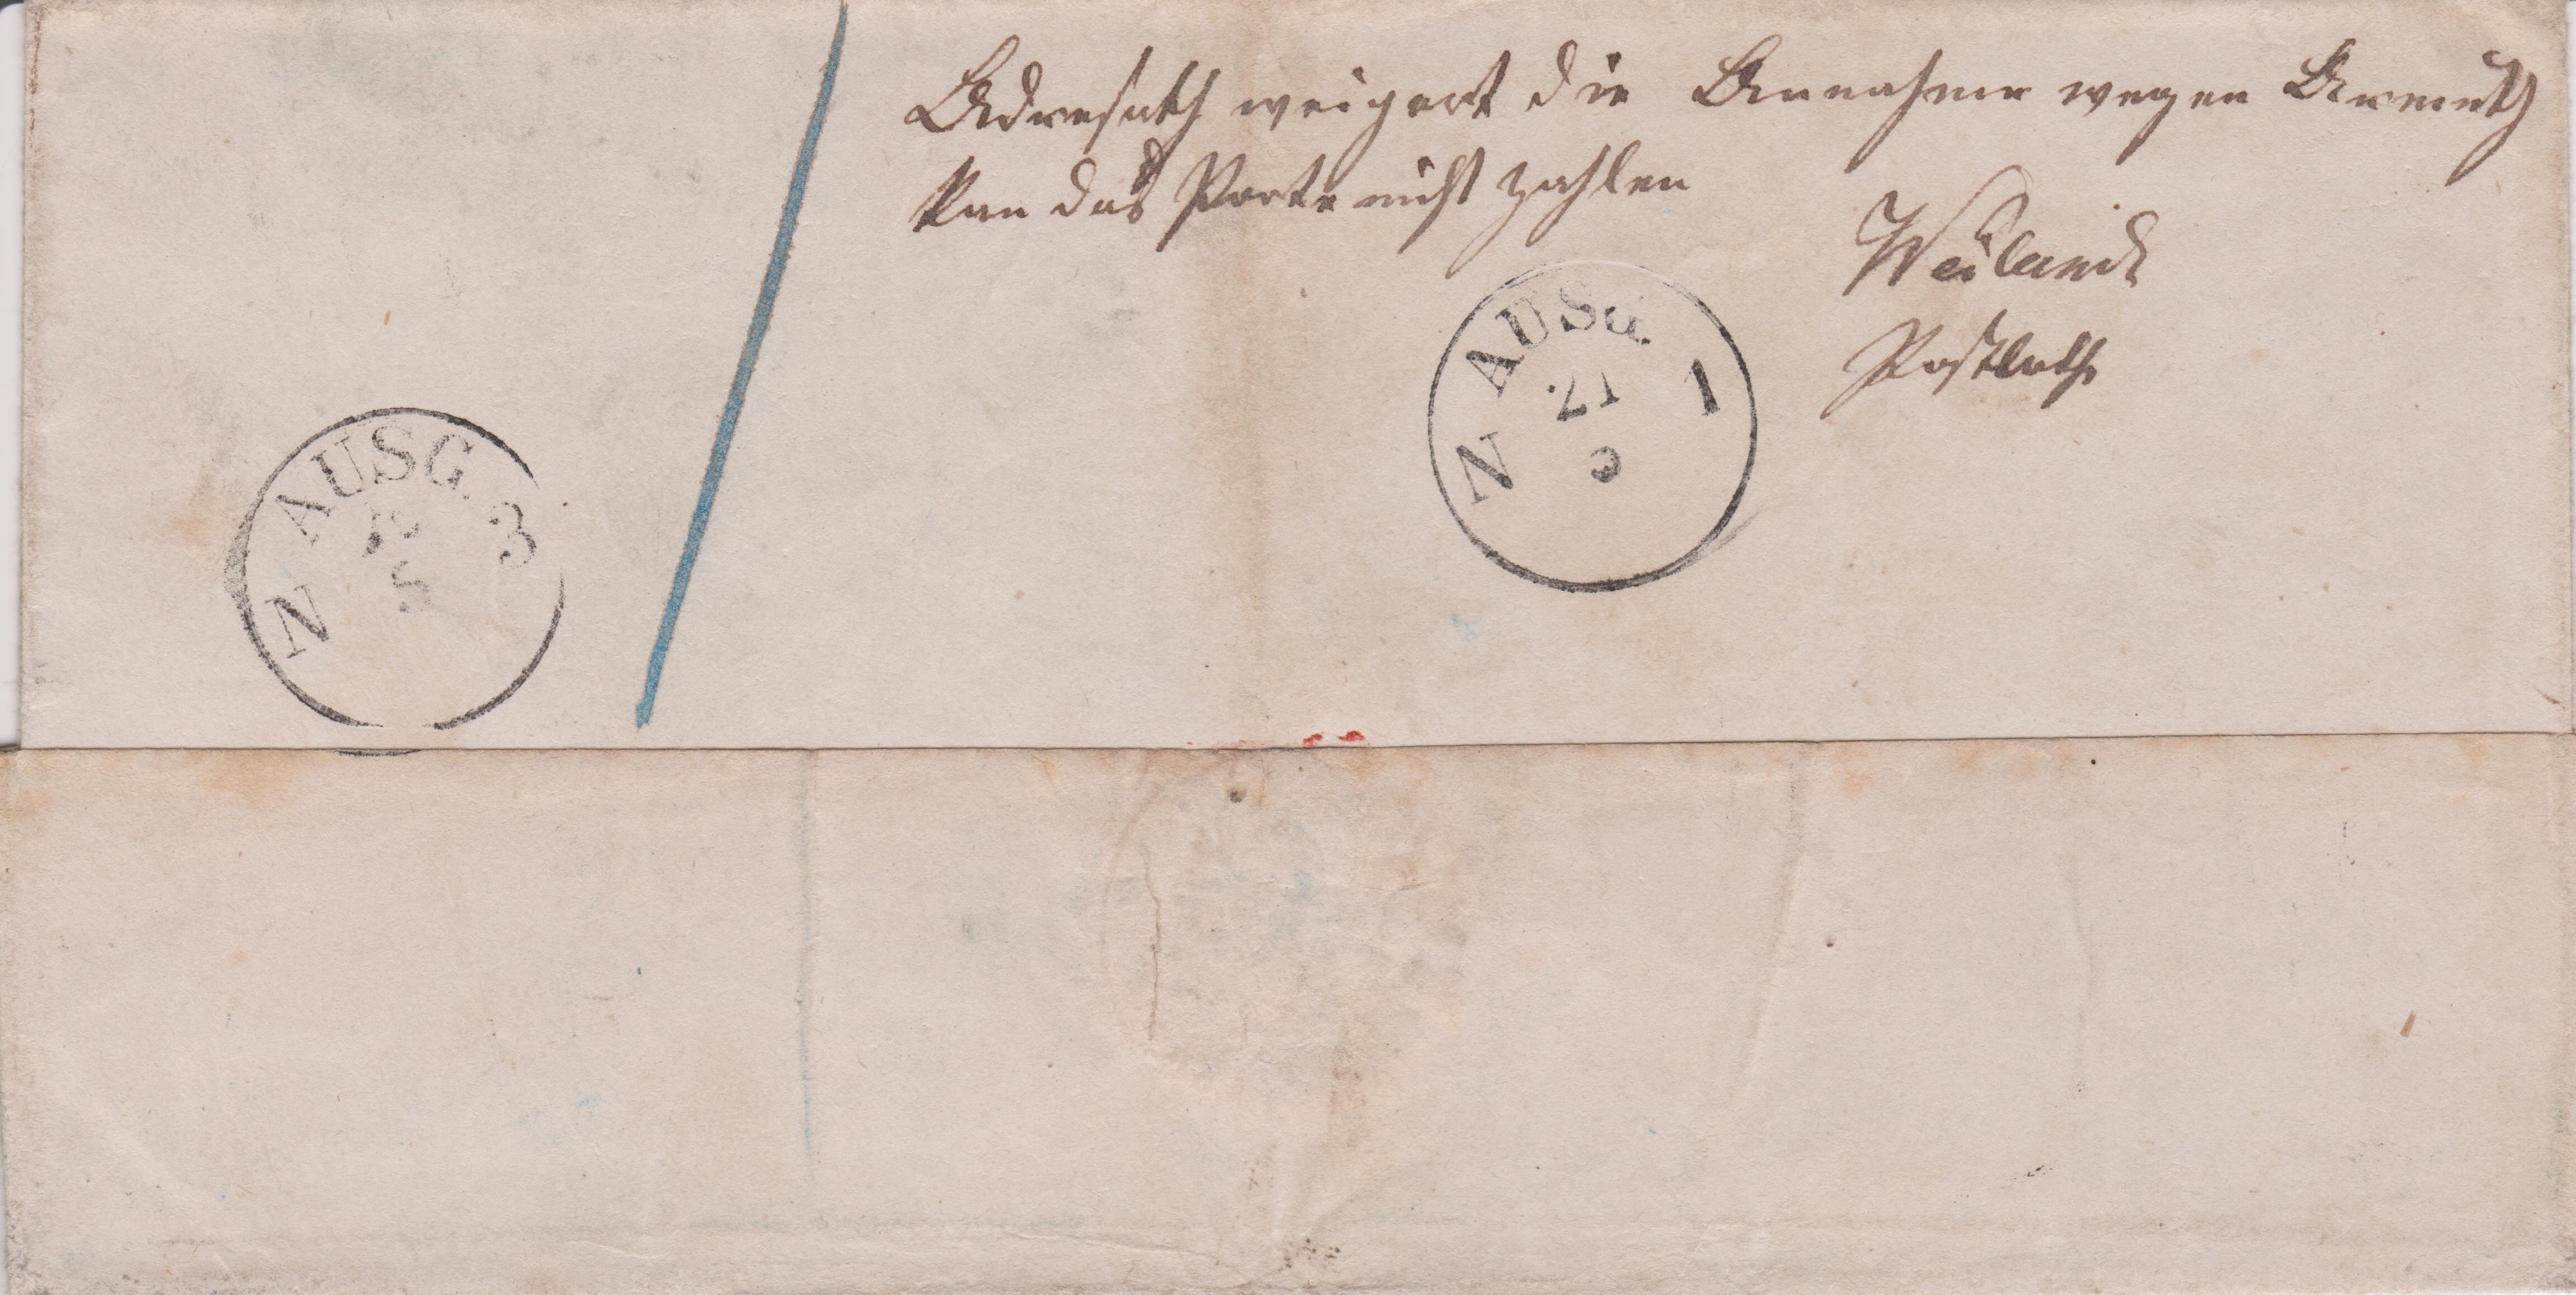 Adresath weigert die Annahme wegen Armuth
kan das Porto nicht zahlen
Weiland
Postbothe
AUSG.
N 21 1
AUSG.
N 3
5